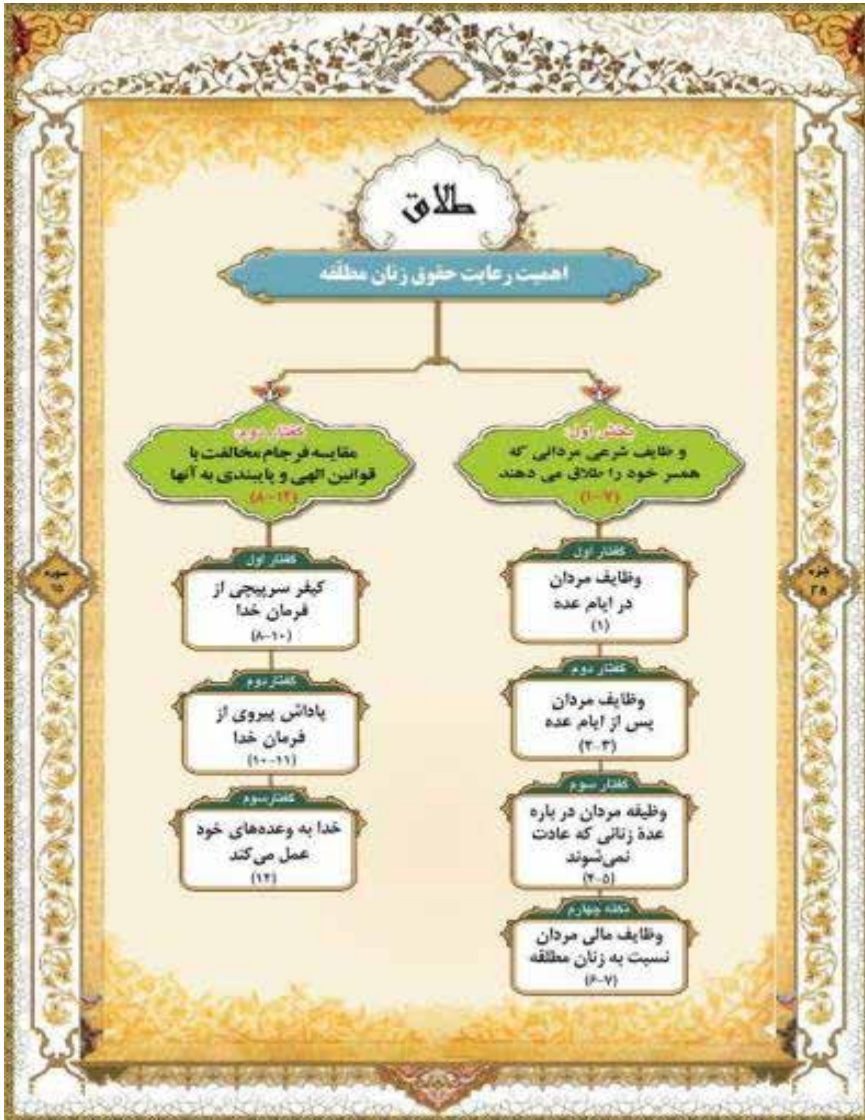 طلاق
اهمیت رعایت حقوق زنان مطلّقه
بخش اول:
وظایف شرعی مردانی که
همسر خود را طلاق می دهند
(۱-۷)
گفتار اول
وظایف مردان
در ایام عده
(۱)
گفتار دوم
وظایف مردان
پس از ایام عده
(۲-۳)
گفتار سوم
وظیفه مردان در باره
عدهٔ زنانی که عادت
نمی‌شوند
(۴-۵)
نکته چهارم
وظایف مالی مردان
نسبت به زنان مطلقه
(۶-۷)
گفتار دوم:
مقایسه فرجام مخالفت با
قوانین الهی و پایبندی به آنها
(۸-۱۲)
گفتار اول
کیفر سرپیچی از
فرمان خدا
(۸-۱۰)
گفتار دوم
پاداش پیروی از
فرمان خدا
(۱۰-۱۱)
گفتار سوم
خدا به وعده‌های خود
عمل می‌کند
(۱۲)
جزء
۲۸
سوره
۶۵